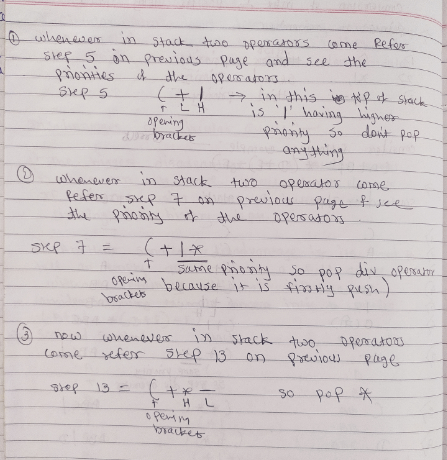 ① whenever in stack two operators come Refer
step 5 on previous page and see the
priorities of the operators.
Step 5 ( + / → in this top of stack
↑ L H is '/' having higher
opening priority so dont pop
bracket anything
② whenever in stack two operator come
Refer step 7 on previous page & see
the priority of the operators
step 7 = ( + / *
↑ same priority so pop div operator
opening because it is firstly push)
bracket
③ now whenever in stack two operators
come refer step 13 on previous page
step 13 = ( + * - so pop *
↑ H L
opening
bracket